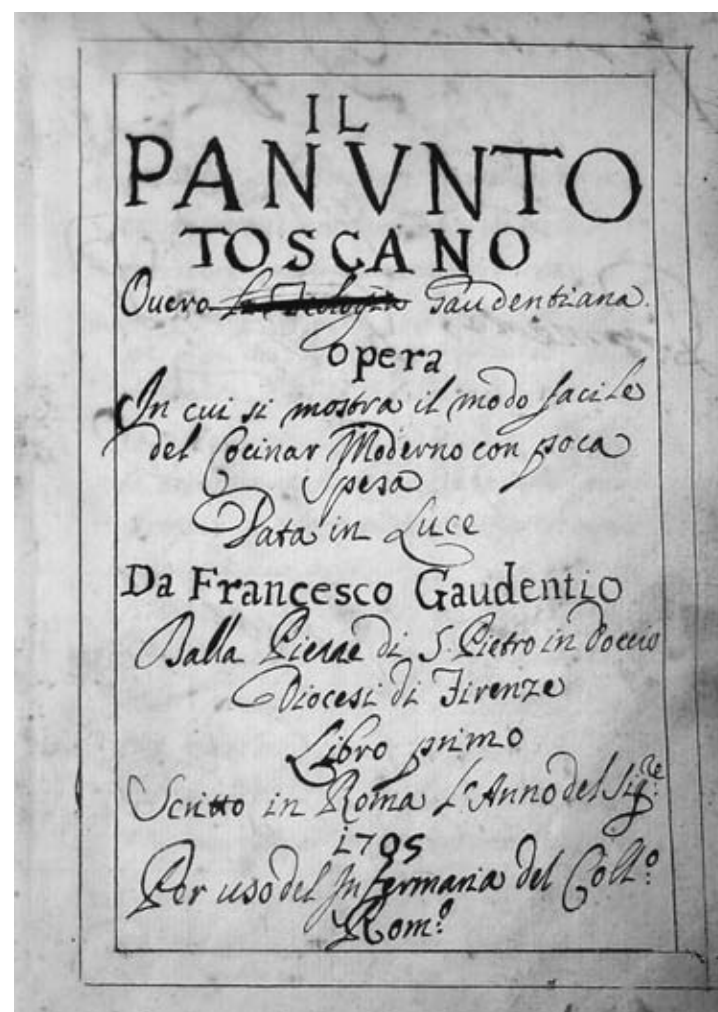 IL
PANVNTO
TOSCANO
Overo Gaudentiana.
opera
In cui si mostra il modo facile
del Cocinar Moderno con poca
Spesa
Data in Luce
Da Francesco Gaudentio
Dalla di S. Pietro in
Diocesi di Firenze
Libro primo
Scritto in Roma L'Anno del Sig.re
1705
Per uso del Infermaria del Coll.o
Rom.o